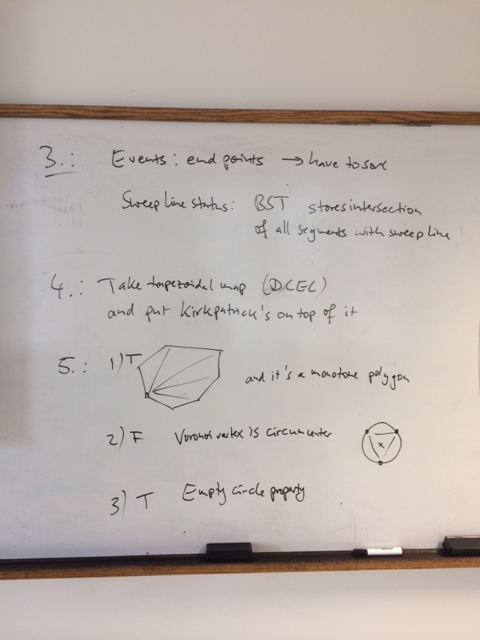 3.: Events: end points → have to sort
Sweep line status: BST stores intersection
of all segments with sweep line
4.: Take trapezoidal map (DCEL)
and put Kirkpatrick's on top of it
5.: 1) T and it's a monotone polygon
2) F Voronoi vertex is circumcenter
3) T Empty circle property